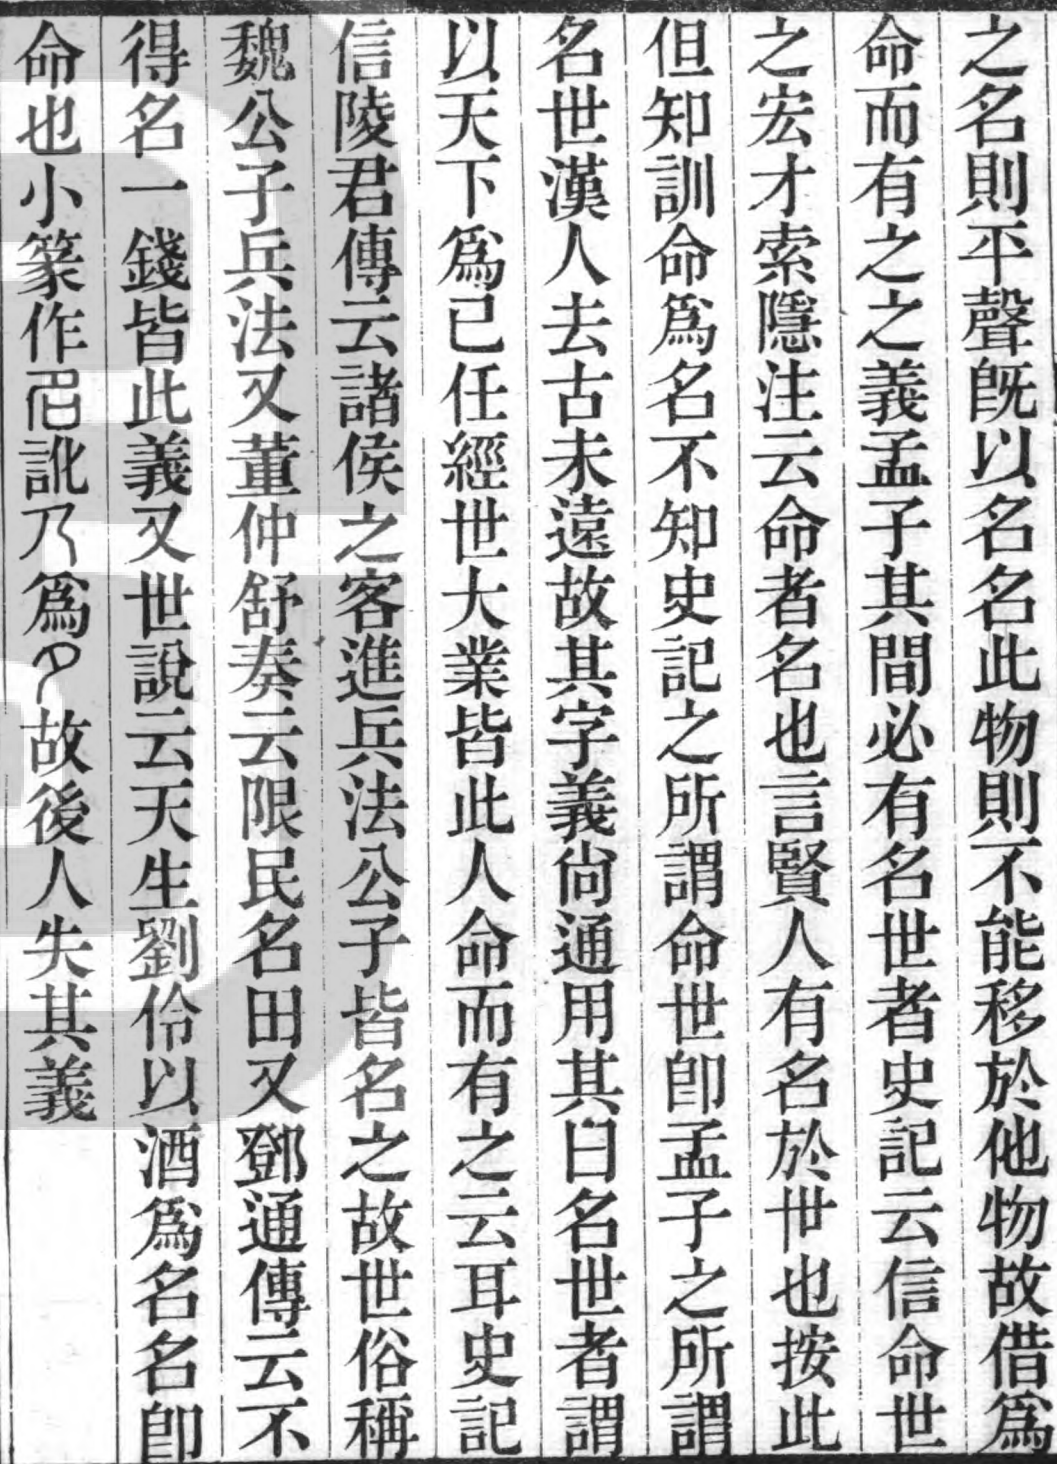 之名則平聲旣以名名此物則不能移於他物故借爲
命而有之之義孟子其間必有名世者史記云信命世
之宏才索隱注云命者名也言賢人有名於世也按此
但知訓命爲名不知史記之所謂命世卽孟子之所謂
名世漢人去古未遠故其字義尙通用其曰名世者謂
以天下爲己任經世大業皆此人命而有之云耳史記
信陵君傳云諸侯之客進兵法公子皆名之故世俗稱
魏公子兵法又董仲舒奏云限民名田又鄧通傳云不
得名一錢皆此義又世說云天生劉伶以酒爲名名卽
命也小篆作訛乃爲故後人失其義